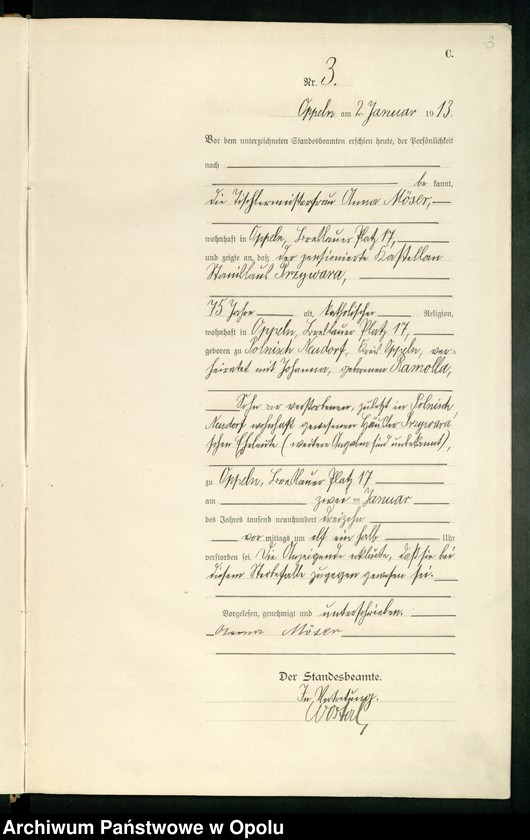 3
C.
Nr. 3.
Oppeln am 2. Januar 1913.
Vor dem unterzeichneten Standesbeamten erschien heute, der Persönlichkeit
nach
be kannt,
die Tischlermeisterfrau Anna Möser,
wohnhaft in Oppeln, Breslauer Platz 17,
und zeigte an, daß der pensionierte Kastellan
Stanislaus Przywara,
75 Jahre alt, katholischer Religion,
wohnhaft in Oppeln, Breslauer Platz 17,
geboren zu Polnisch Neudorf, Kreis Oppeln, ver-
heiratet mit Johanna, geborenen Ramolla,
Sohn der verstorbenen, zuletzt in Polnisch
Neudorf wohnhaft gewesenen Häusler Przywara-
schen Eheleute (weitere Angaben sind unbekannt),
zu Oppeln, Breslauer Platz 17
am zwei ten Januar
des Jahres tausend neunhundert dreizehn
vor mittags um elf ein halb Uhr
verstorben sei. Die Anzeigende erklärte, daß sie bei
diesem Sterbefalle zugegen gewesen sei.
Vorgelesen, genehmigt und unterschrieben.
Anna Möser
Der Standesbeamte.
In Vertretung.
Archiwum Państwowe w Opolu